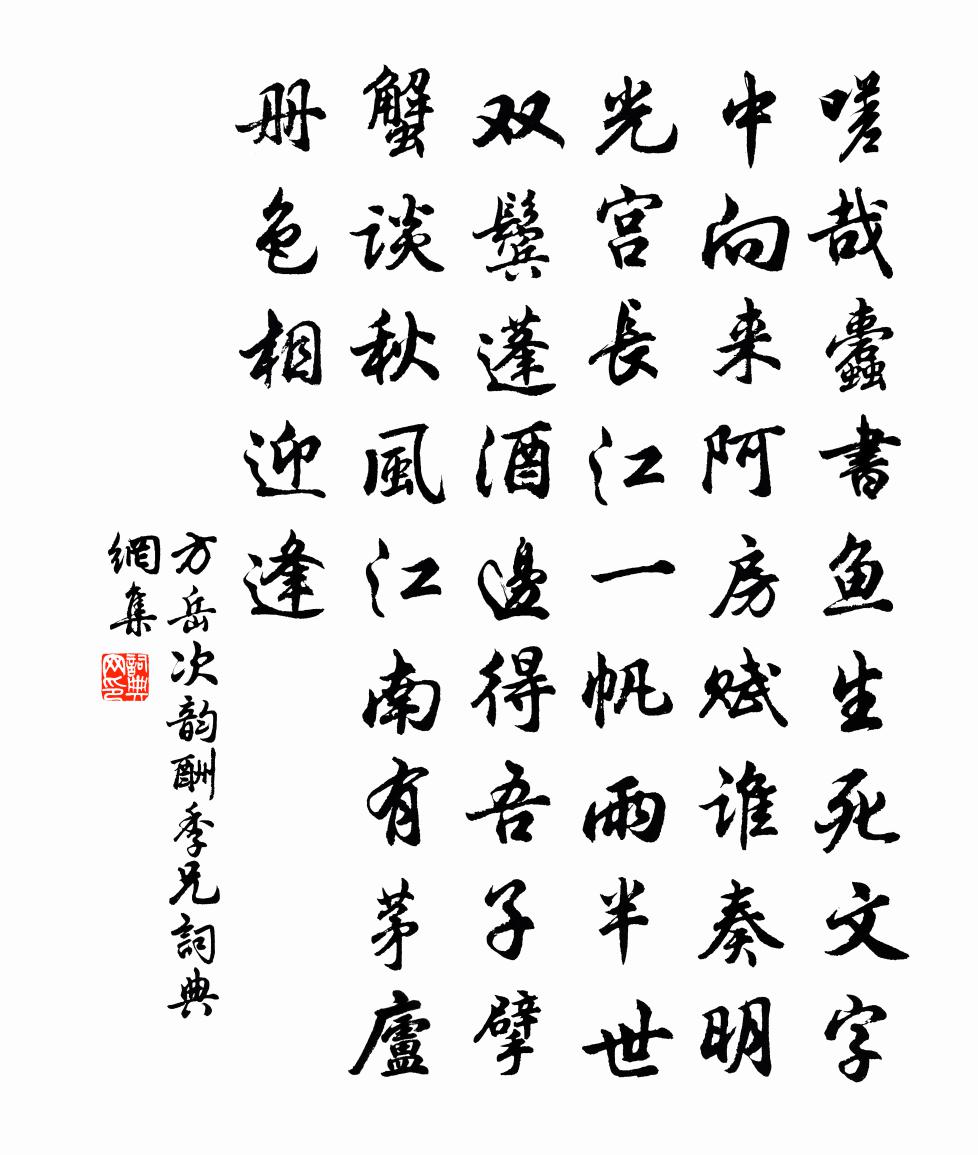 嗟哉蠹書魚生死文字
中向来阿房赋谁奏明
光宫長江一帆雨半世
双鬓蓬酒邊得吾子擘
蟹谈秋風江南有茅廬
册色相迎逢
方岳次韵酬季兄詞典
網集
詞典网印